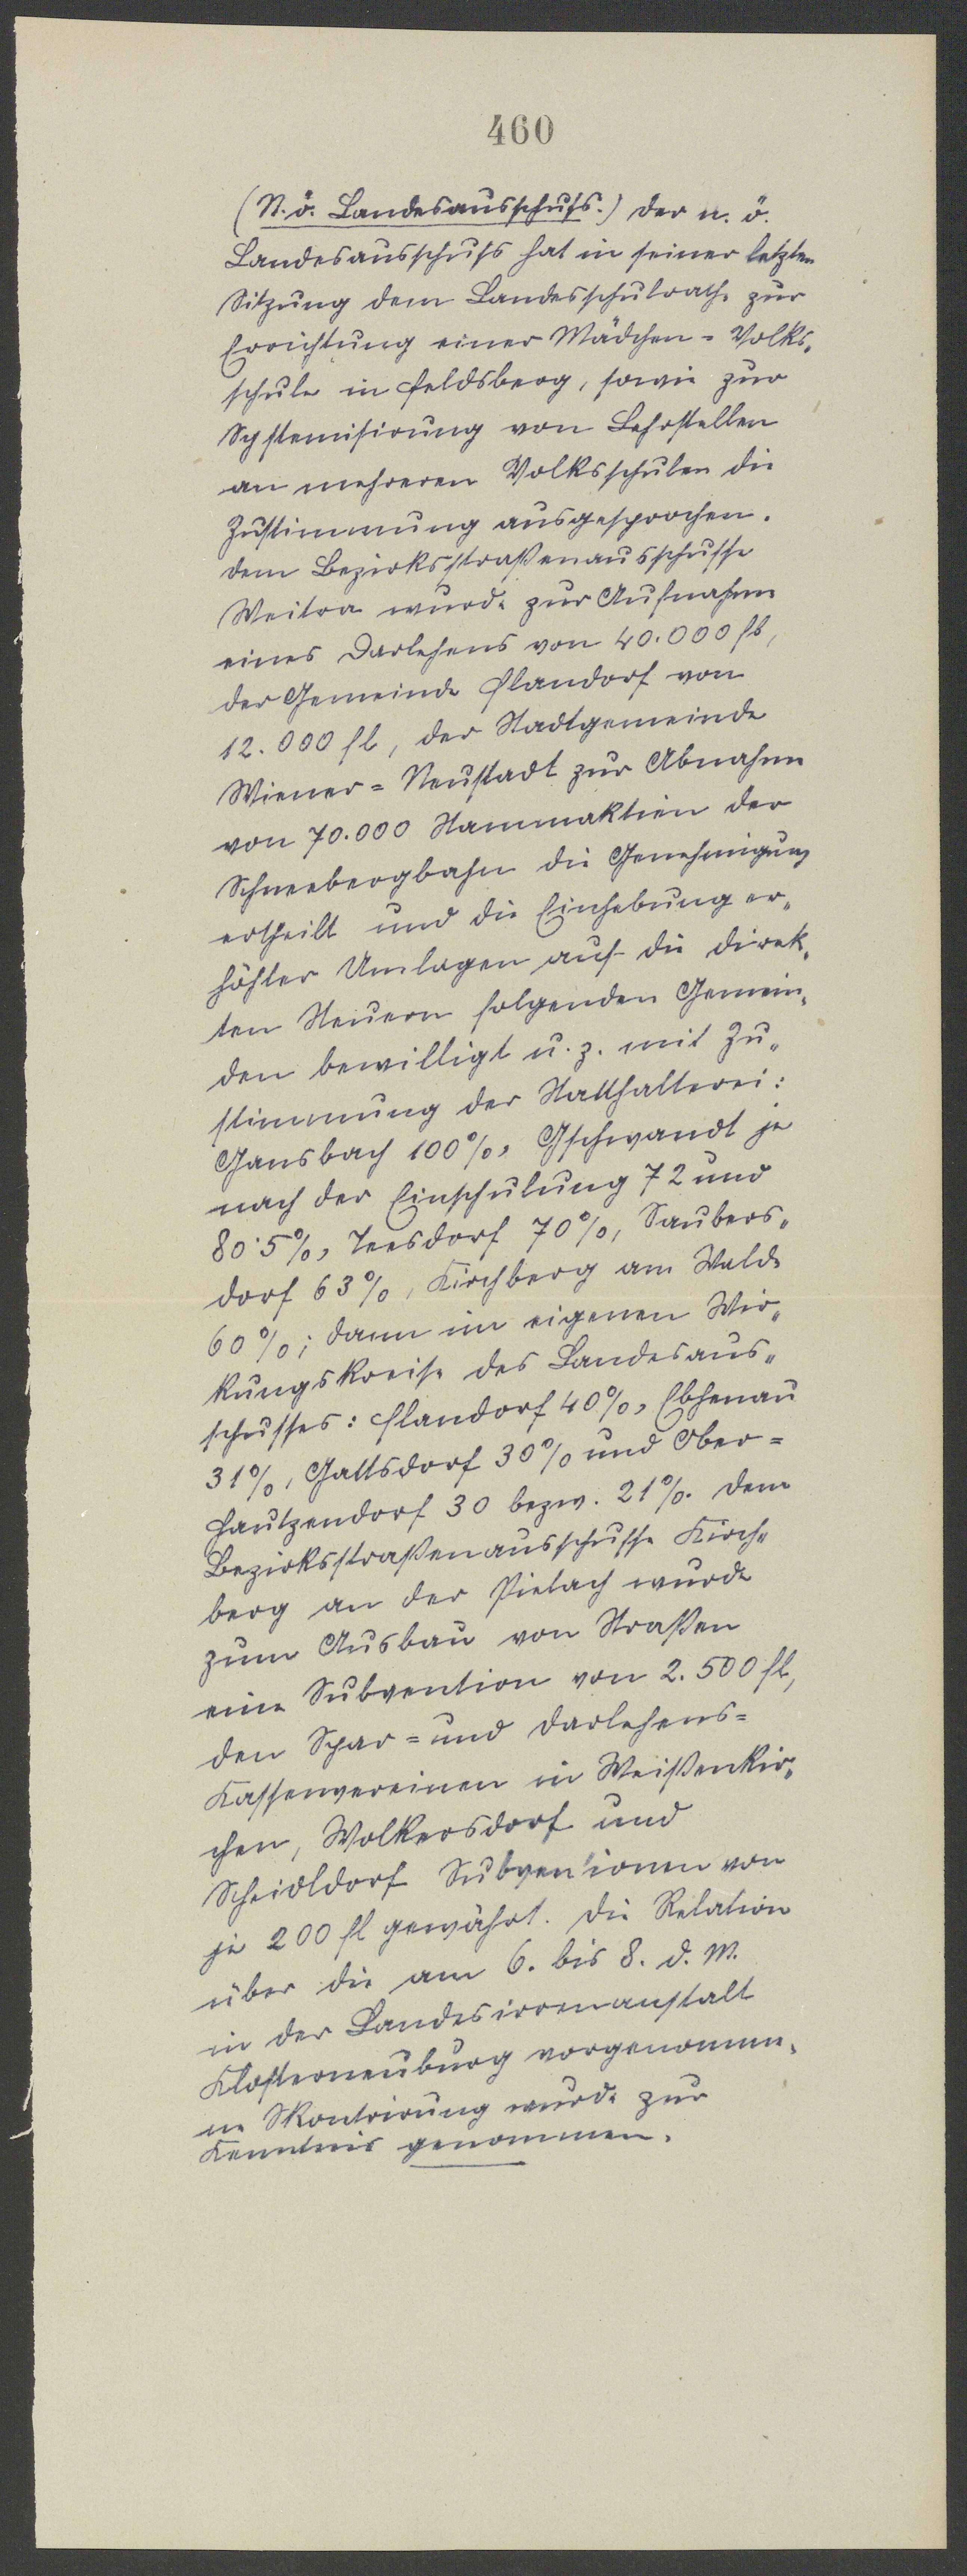 460
(N. ö. Landesausschuß.) Der n. ö.
Landesausschuß hat in seiner letzten
Sitzung dem Landesschulrathe zur
Errichtung einer Mädchen-Volks„
schule in Feldsberg, sowie zur
Systemisirung von Lehrstellen
an mehreren Volksschulen die
Zustimmung ausgesprochen.
Dem Bezirksstraßenausschusse
Weitra wurde zur Aufnahme
eines Darlehens von 40.000 fl,
der Gemeinde Flandorf von
12.000 fl, der Stadtgemeinde
Wiener-Neustadt zur Abnahme
von 70.000 Stammaktien der
Schneebergbahn die Genehmigung
ertheilt und die Einhebung er„
höhter Umlagen auf die direk„
ten Steuern folgenden Gemein„
den bewilligt u. z. mit Zu„
stimmung der Statthalterei:
Gansbach 100%, Gschwandt je
nach der Einschulung 72 und
80·5%, Teesdorf 70%, Saubers„
dorf 63%, Kirchberg am Walde
60%; dann im eigenen Wir„
kungskreise des Landesaus„
schusses: Flandorf 40%, Ebhenau
31%, Gattsdorf 30% und Ober-
hautzendorf 30 bezw. 21%. Dem
Bezirksstraßenausschusse Kirch„
berg an der Pielach wurde
zum Ausbau von Straßen
eine Subvention von 2.500 fl,
den Spar- und Darlehens-
Kassenvereinen in Weißenkir„
chen, Wolkersdorf und
Scheidldorf Subventionen von
je 200 fl gewährt. Die Relation
über die am 6. bis 8. d. M.
in der Landesirrenanstalt
Klosterneuburg vorgenomme„
ne Skontrirung wurde zur
Kenntnis genommen.